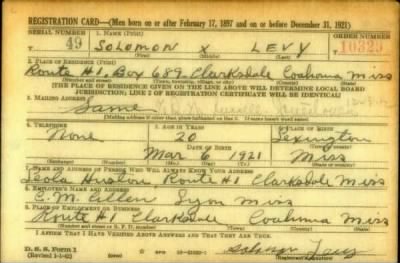 REGISTRATION CARD—(Men born on or after February 17, 1897 and on or before December 31, 1921)
SERIAL NUMBER 1. NAME (Print) ORDER NUMBER
49 SOLOMON X LEVY 10329
(First) (Middle) (Last)
2. PLACE OF RESIDENCE (Print)
Route #1, Box 689 Clarksdale Coahoma Miss
(Number and street) (Town, township, village, or city) (County) (State)
[THE PLACE OF RESIDENCE GIVEN ON THE LINE ABOVE WILL DETERMINE LOCAL BOARD
JURISDICTION; LINE 2 OF REGISTRATION CERTIFICATE WILL BE IDENTICAL]
3. MAILING ADDRESS
Same
[Mailing address if other than place indicated on line 2. If same insert word same]
4. TELEPHONE 5. AGE IN YEARS 6. PLACE OF BIRTH
None 20 Lexington
DATE OF BIRTH
Mar 6 1921 Miss
(Exchange) (Number) (Mo.) (Day) (Yr.) (State or country)
7. NAME AND ADDRESS OF PERSON WHO WILL ALWAYS KNOW YOUR ADDRESS
Leola Route #1 Clarksdale Miss
8. EMPLOYER'S NAME AND ADDRESS
C. M. Allen Lyon Miss
9. PLACE OF EMPLOYMENT OR BUSINESS
Route #1 Clarksdale Coahoma Miss
(Number and street or R. F. D. number) (Town) (County) (State)
I AFFIRM THAT I HAVE VERIFIED ABOVE ANSWERS AND THAT THEY ARE TRUE.
D. S. S. Form 1
(Revised 1-1-42) (over)